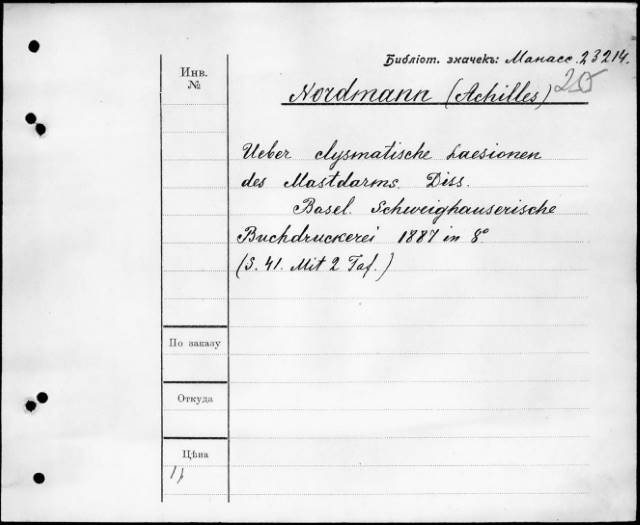 Библіот. значекъ: Манасс. 23214.
Инв.
№
Nordmann (Achilles) 20
Ueber clysmatische Laesionen
des Mastdarms. Diss.
Basel. Schweighauserische
Buchdruckerei 1887 in 8°
(S. 41. Mit 2 Taf.)
По заказу
Откуда
Цѣна